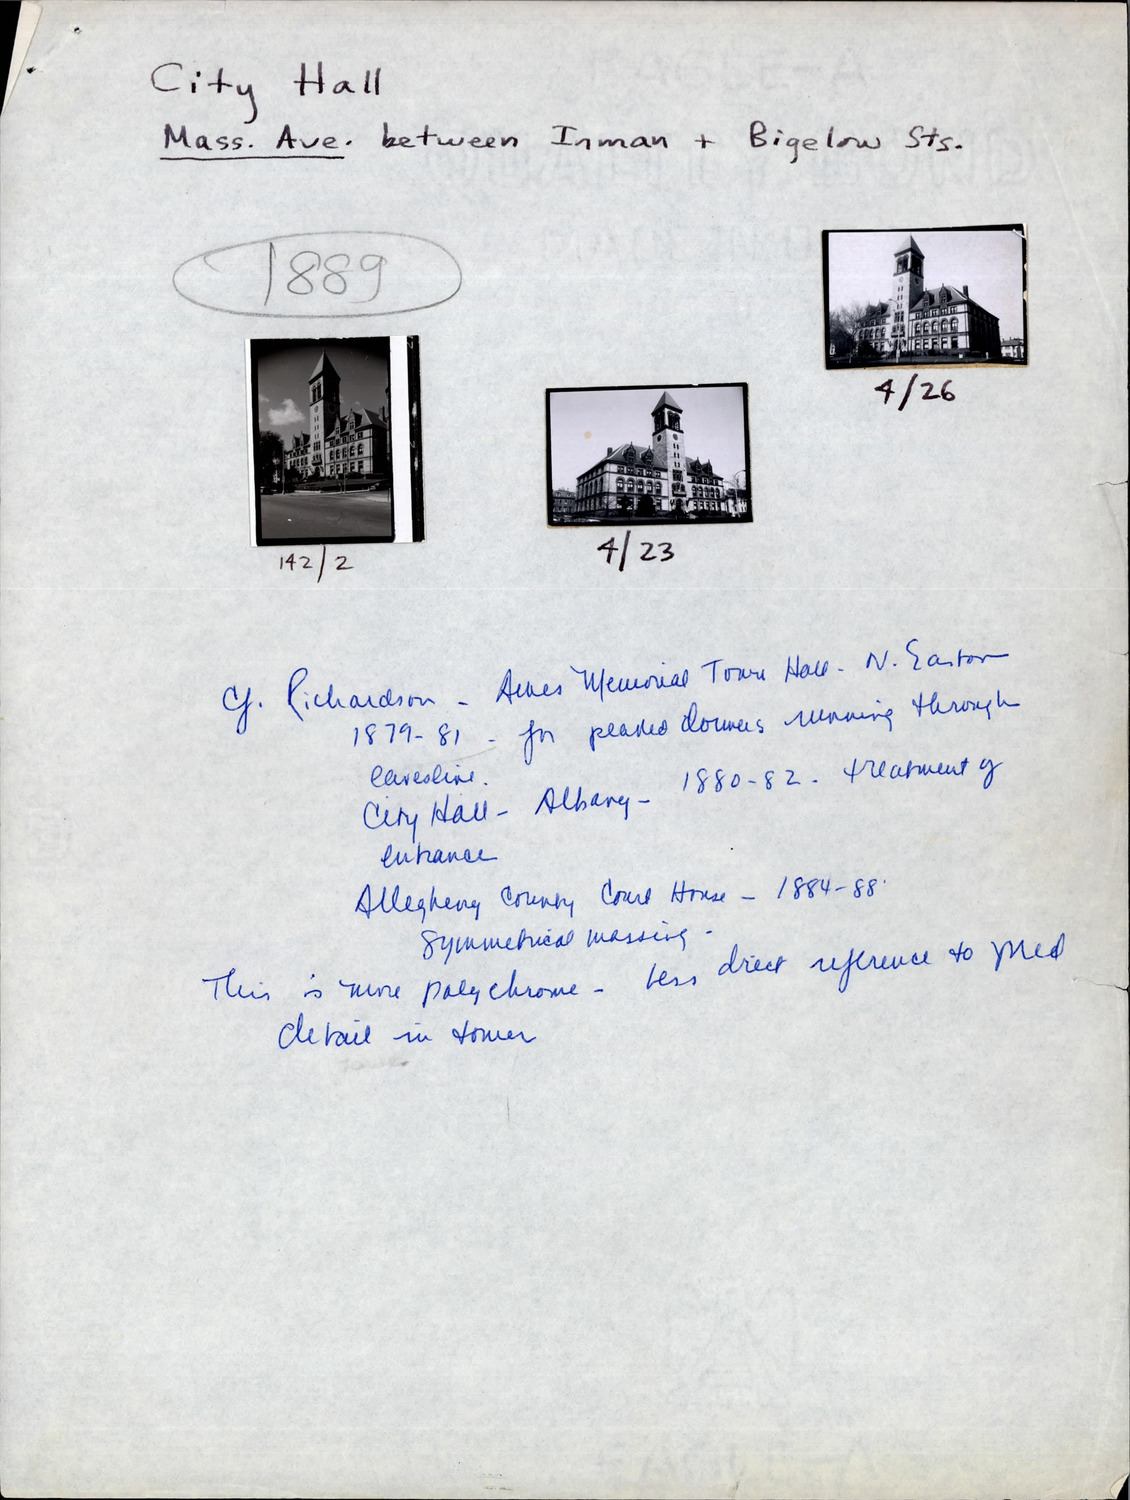 City Hall
Mass. Ave. between Inman + Bigelow Sts.
1889
4/26
142/2
4/23
cf. Richardson - Ames Memorial Town Hall - N. Easton
1879-81 - for peaked dormers running through
eavesline.
City Hall - Albany - 1880-82 - treatment of
entrance
Allegheny County Court House - 1884-88
symmetrical massing -
This is more polychrome - less direct reference to Med
detail in tower